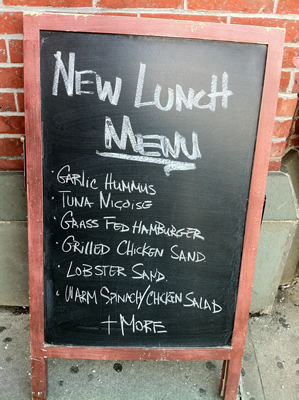 NEW LUNCH
MENU
· GARLIC HUMMUS
· TUNA NIÇOISE
· GRASS FED HAMBURGER
· GRILLED CHICKEN SAND.
· LOBSTER SAND.
· WARM SPINACH/CHICKEN SALAD
+ MORE